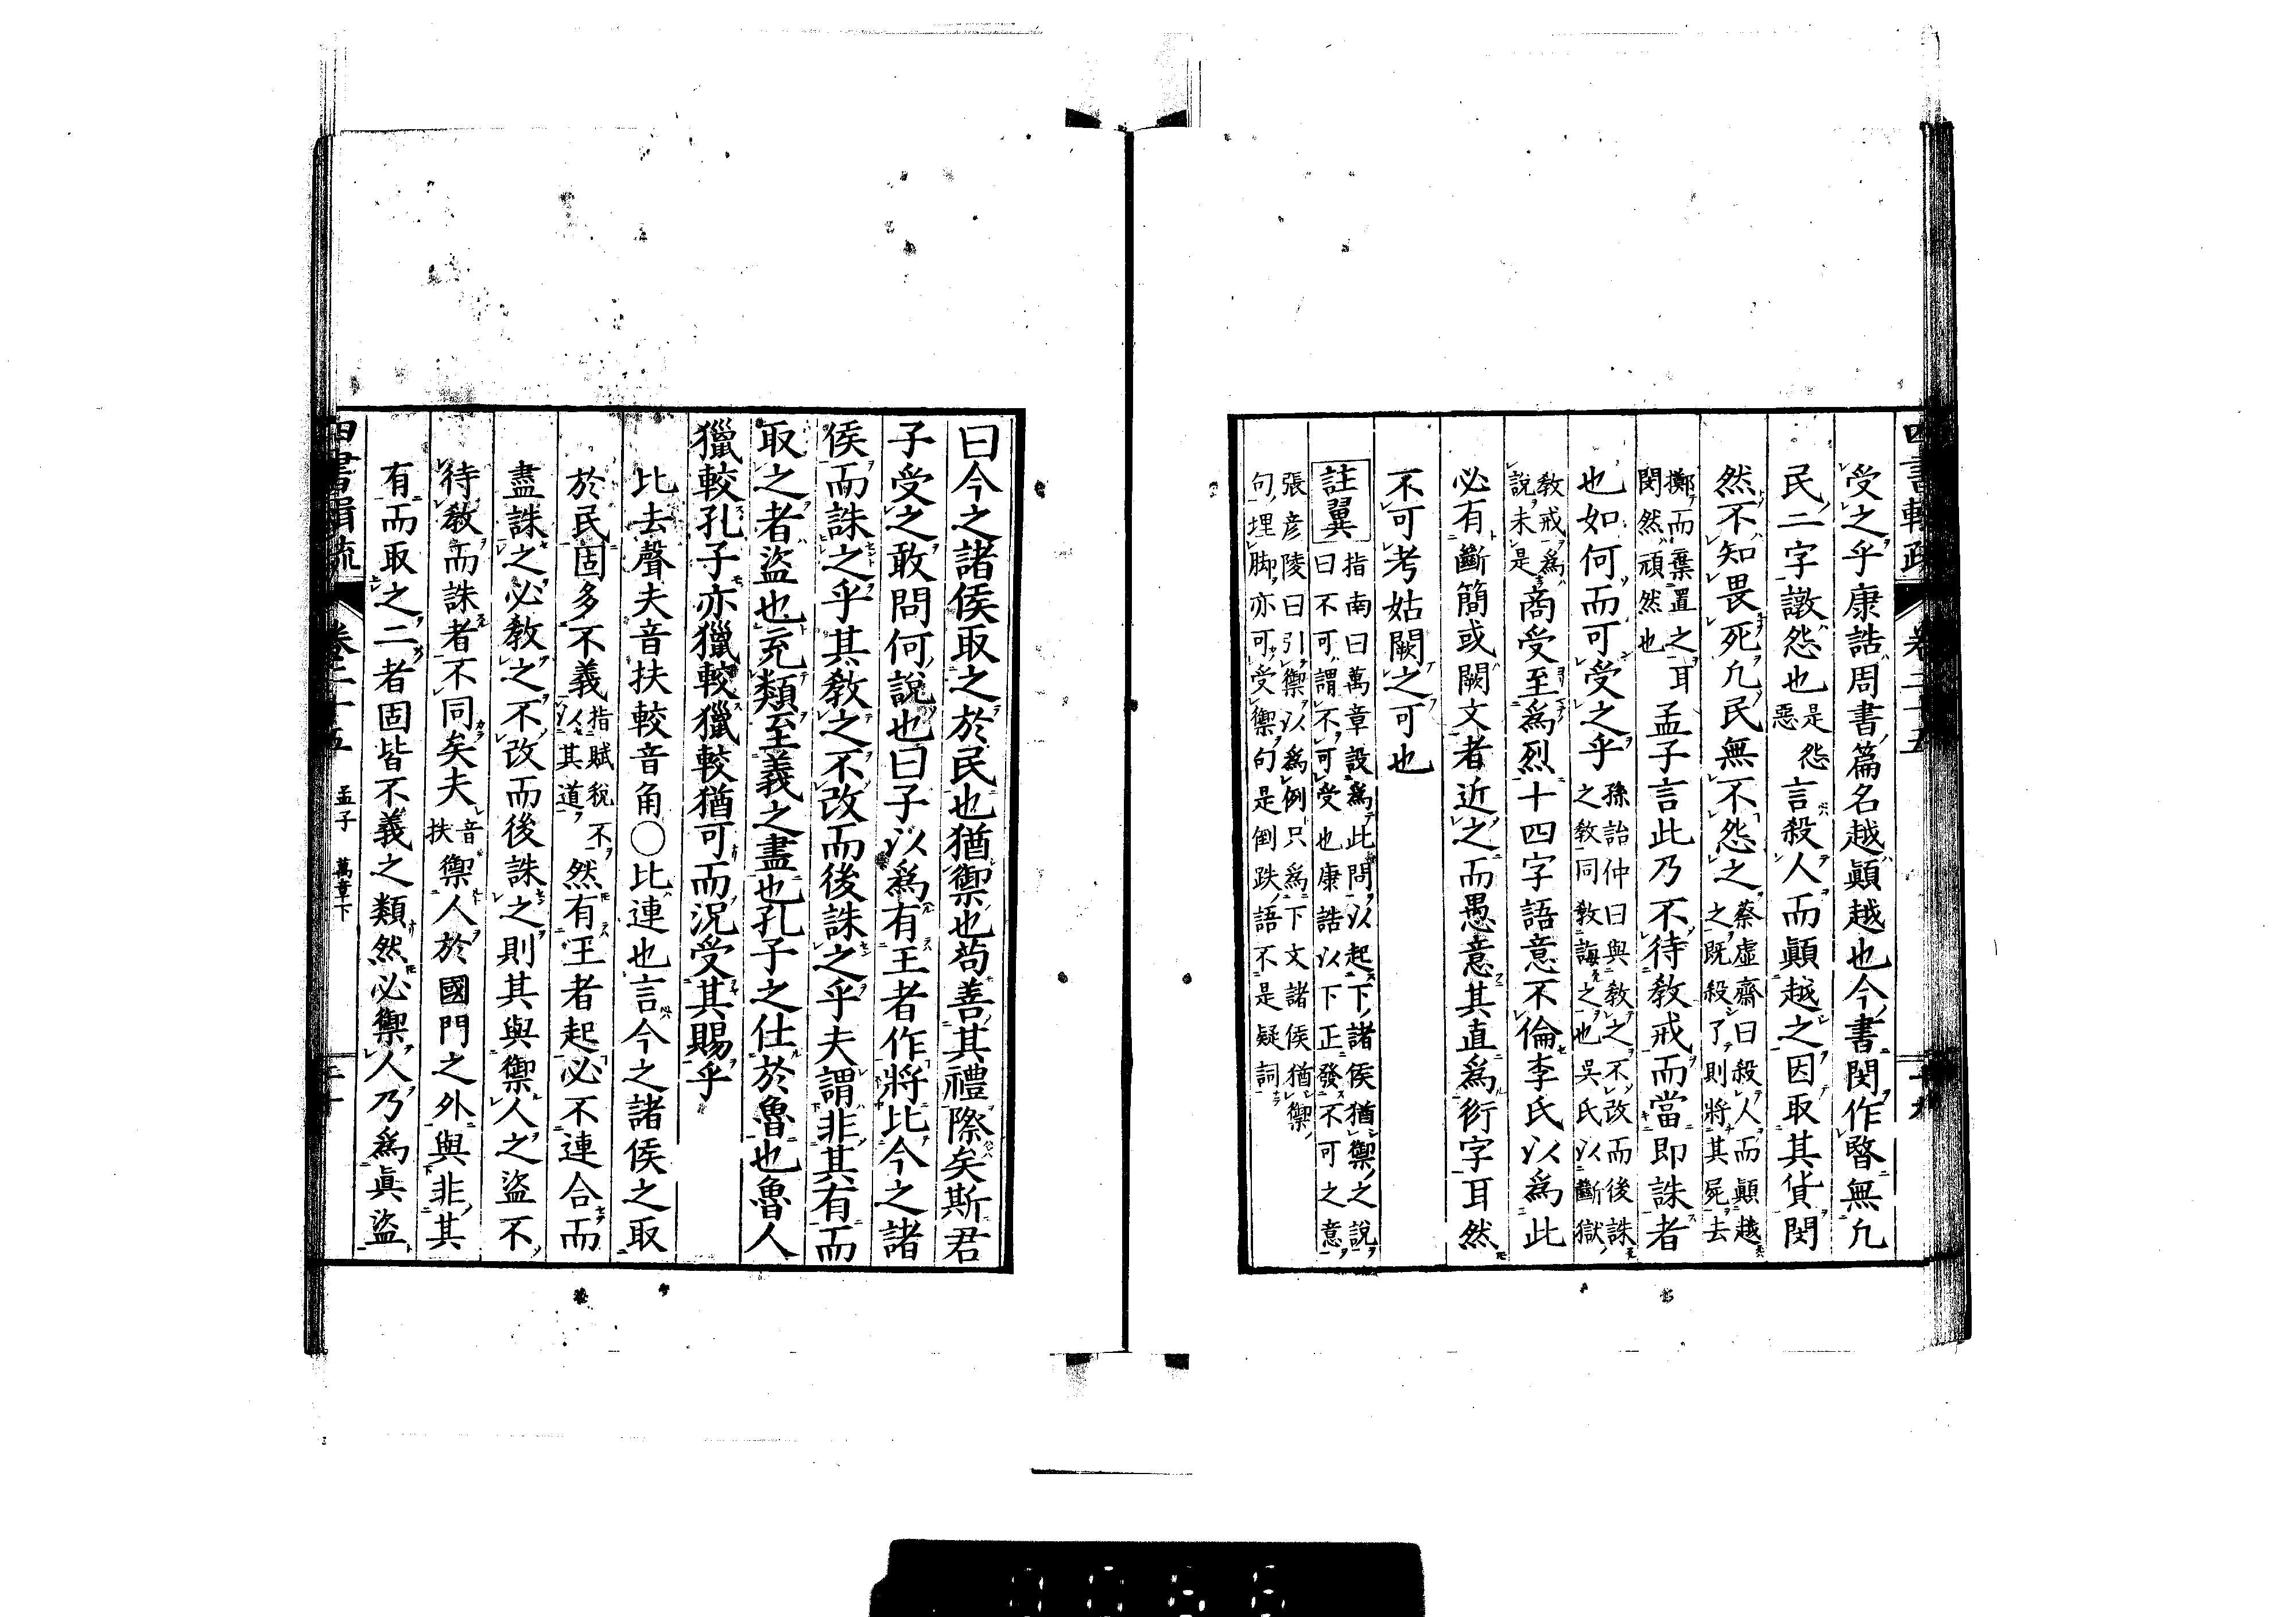 四書輯疏 卷二十五 二十九
受之乎康誥周書篇名越顚越也今書閔作暋無凢
民二字譈怨也是怨惡言殺人而顚越之因取其貨閔
然不知畏死凢民無不怨之蔡虛齋曰殺人而顚越之既殺了則將其屍去
擲而棄置之耳閔然頑然也孟子言此乃不待敎戒而當即誅者
也如何而可受之乎孫詒仲曰與敎之不改而後誅之敎同敎誨之也吳氏以斷獄
敎戒爲說未是商受至爲烈十四字語意不倫李氏以爲此
必有斷簡或闕文者近之而愚意其直爲衍字耳然
不可考姑闕之可也
註翼指南曰萬章設爲此問以起下諸侯猶禦之說曰不可謂不可受也康誥以下正發不可之意
張彦陵曰引禦以爲例只爲下文諸侯猶禦句埋脚亦可受禦句是倒跌語不是疑詞
曰今之諸侯取之於民也猶禦也苟善其禮際矣斯君
子受之敢問何說也曰子以爲有王者作將比今之諸
侯而誅之乎其敎之不改而後誅之乎夫謂非其有而
取之者盜也充類至義之盡也孔子之仕於魯也魯人
獵較孔子亦獵較獵較猶可而況受其賜乎
比去聲夫音扶較音角○比連也言今之諸侯之取
於民固多不義指賦稅不以其道然有王者起必不連合而
盡誅之必敎之不改而後誅之則其與禦人之盜不
待敎而誅者不同矣夫音扶禦人於國門之外與非其
有而取之二者固皆不義之類然必禦人乃爲眞盜
四書輯疏 卷二十五 孟子 萬章下 三十